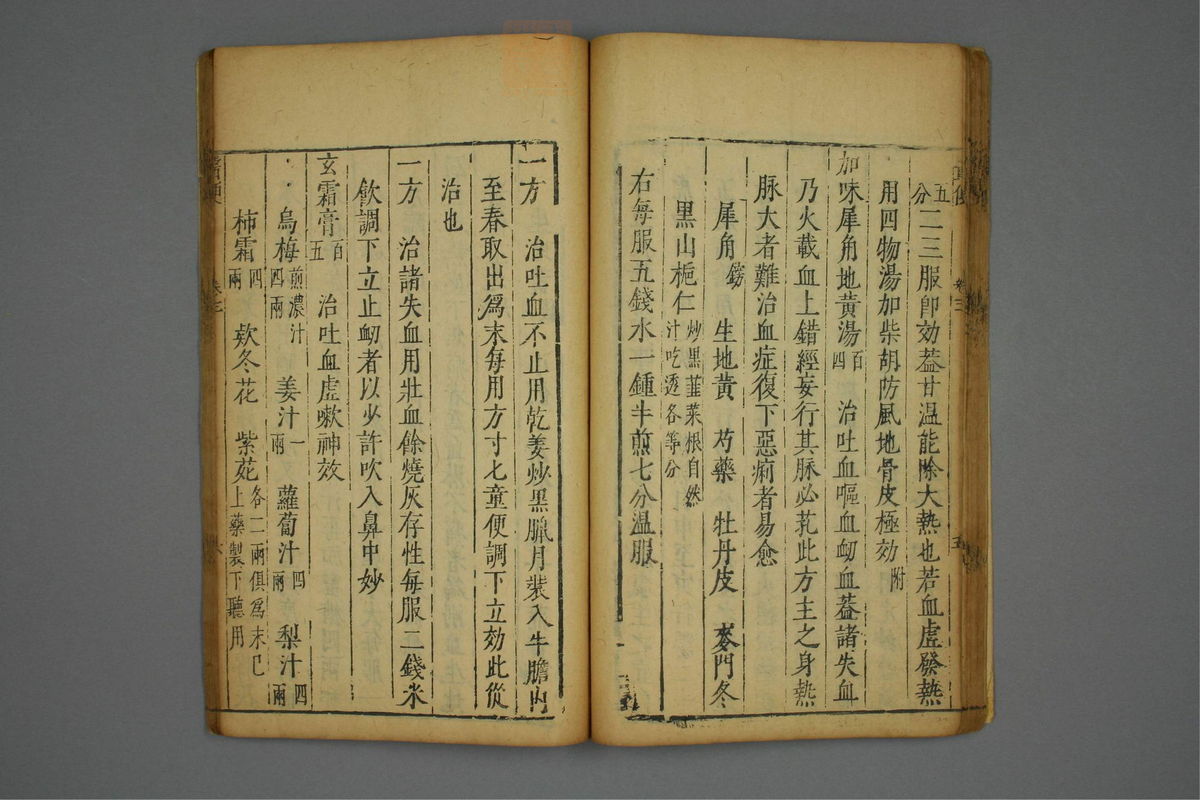 五分二三服卽効葢甘温能除大熱也若血虛發熱
用四物湯加柴胡防風地骨皮極効附
加味犀角地黃湯百四 治吐血嘔血衂血葢諸失血
乃火載血上錯經妄行其脉必芤此方主之身熱
脉大者難治血症復下惡痢者易愈
犀角鎊 生地黃 芍藥 牡丹皮 麥門冬
黑山梔仁炒黑韮菜根自然汁吃透各等分
右每服五錢水一鍾半煎七分温服
一方 治吐血不止用乾姜炒黑臘月裝入牛膽內
至春取出爲末每用方寸匕童便調下立効此從
治也
一方 治諸失血用壯血餘燒灰存性每服二錢米
飲調下立止衂者以少許吹入鼻中妙
玄霜膏百五 治吐血虛嗽神效
烏梅煎濃汁四兩 姜汁一兩 蘿蔔汁四兩 梨汁四兩
柿霜四兩 欵冬花 紫菀各二兩俱爲末已上藥製下聽用
醫便 卷三 六